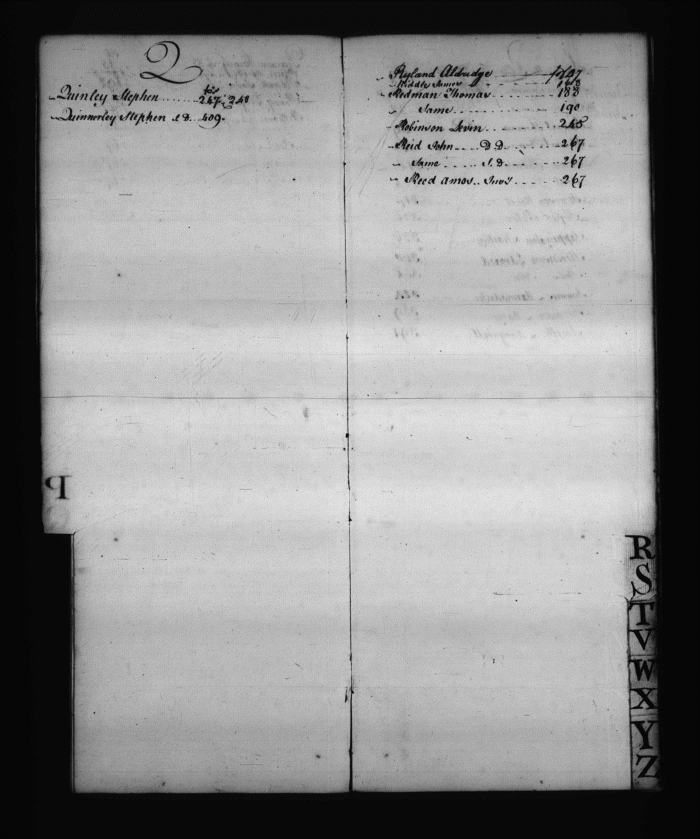 Q
fos
Quinley Stephen ........ 247. 248
Quinnerley Stephen S D. 409.
Ryland Aldridge fos 27
Riddle James 168
Redman Thomas ......... 188
Same ......... 190
Robinson Levin ......... 245
Reid John .... D D. ..... 267
Same ..... S. D ..... 267
Reed Amos .. Invs ...... 267
P
R
S
T
V
W
X
Y
Z